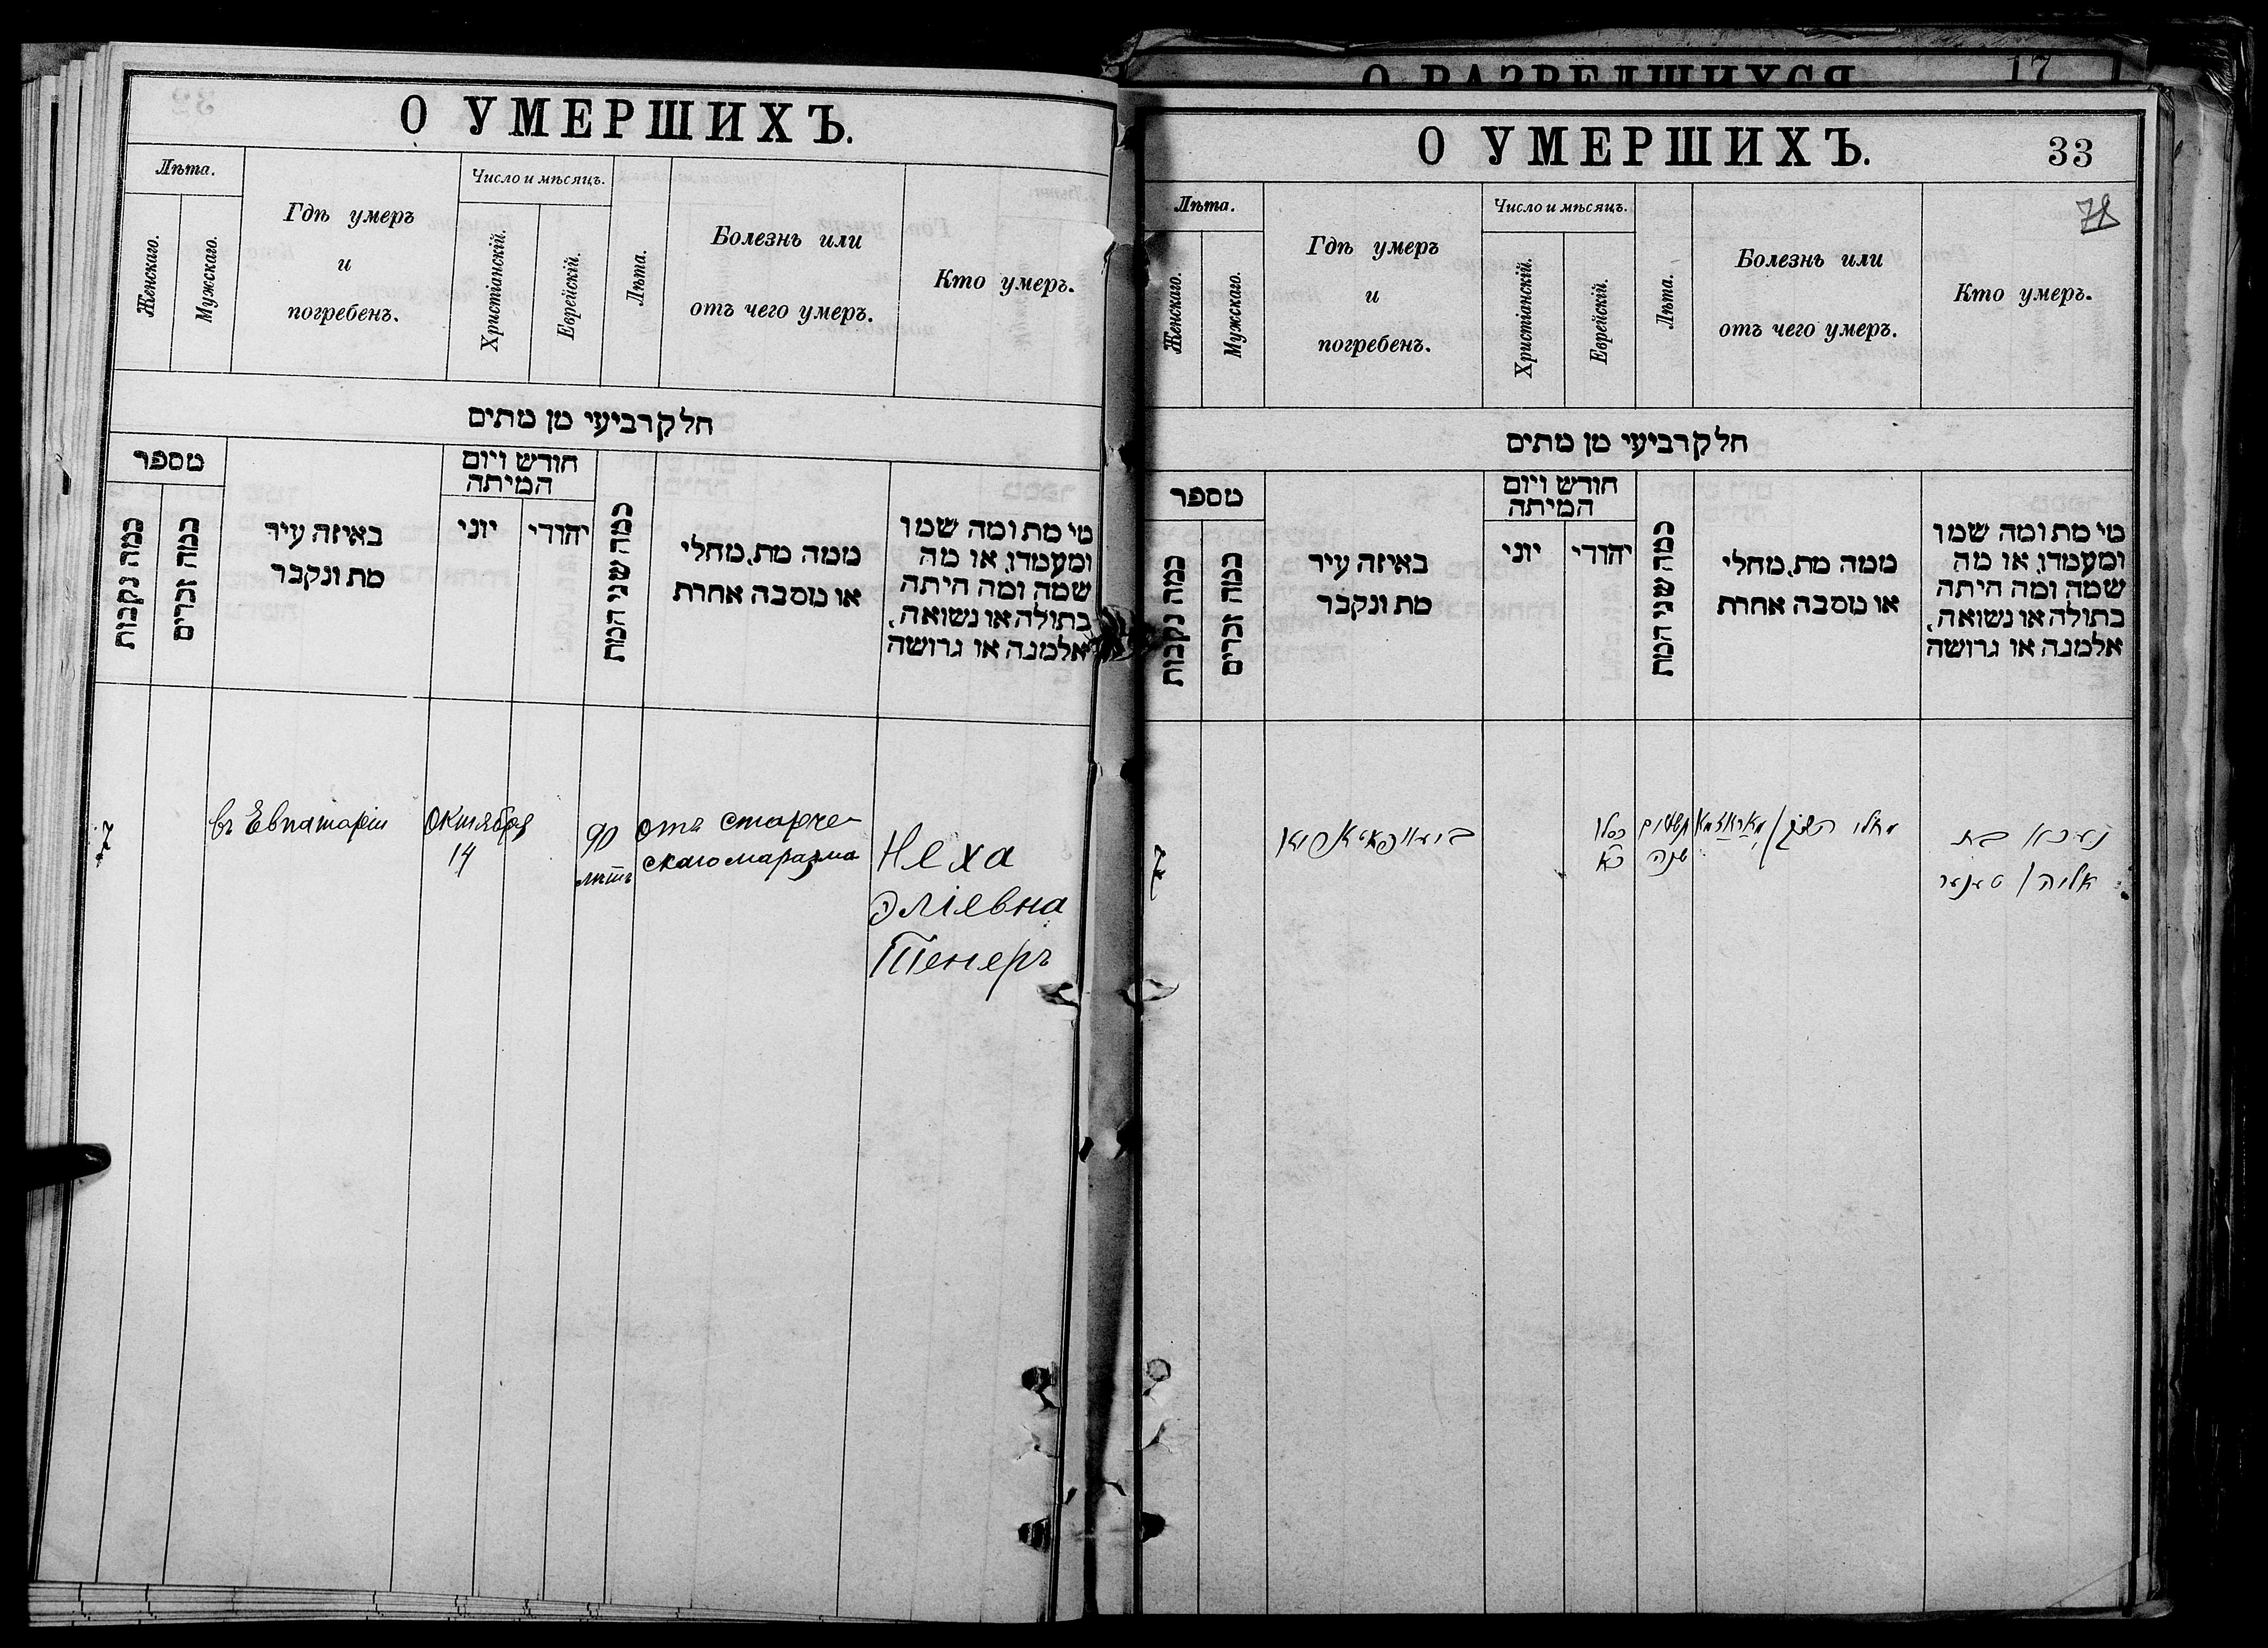 О УМЕРШИХЪ.
Лѣта.
Женскаго.
Мужскаго.
Гдѣ умеръ
и
погребенъ.
Число и мѣсяцъ.
Христіанскій.
Еврейскій.
Лѣта.
Болезнь или
отъ чего умеръ.
Кто умеръ.
חלק רביעי מן מתים
מספר
כמה נקבות
כמה זכרים
באיזה עיר
מת ונקבר
חודש ויום
המיתה
יוני
יהודי
כמה שני המת
ממה מת, מחלי
או מסבה אחרת
מי מת ומה שמו
ומעמדו, או מה
שמה ומה היתה
בתולה או נשואה,
אלמנה או גרושה
7
въ Евпаторіи
Октября
14
90
лѣтъ
отъ старче-
скаго маразма
Неха
Эліевна
Тенеръ
О РАЗВЕДШИХСЯ
17
О УМЕРШИХЪ.
33
Лѣта.
Женскаго.
Мужскаго.
Гдѣ умеръ
и
погребенъ.
Число и мѣсяцъ.
Христіанскій.
Еврейскій.
Лѣта.
Болезнь или
отъ чего умеръ.
Кто умеръ.
חלק רביעי מן מתים
מספר
כמה נקבות
כמה זכרים
באיזה עיר
מת ונקבר
חודש ויום
המיתה
יוני
יהודי
כמה שני המת
ממה מת, מחלי
או מסבה אחרת
מי מת ומה שמו
ומעמדו, או מה
שמה ומה היתה
בתולה או נשואה,
אלמנה או גרושה
7
כסלו
כא
תשעים
שנה
מחלי
בת
אליה / טענער